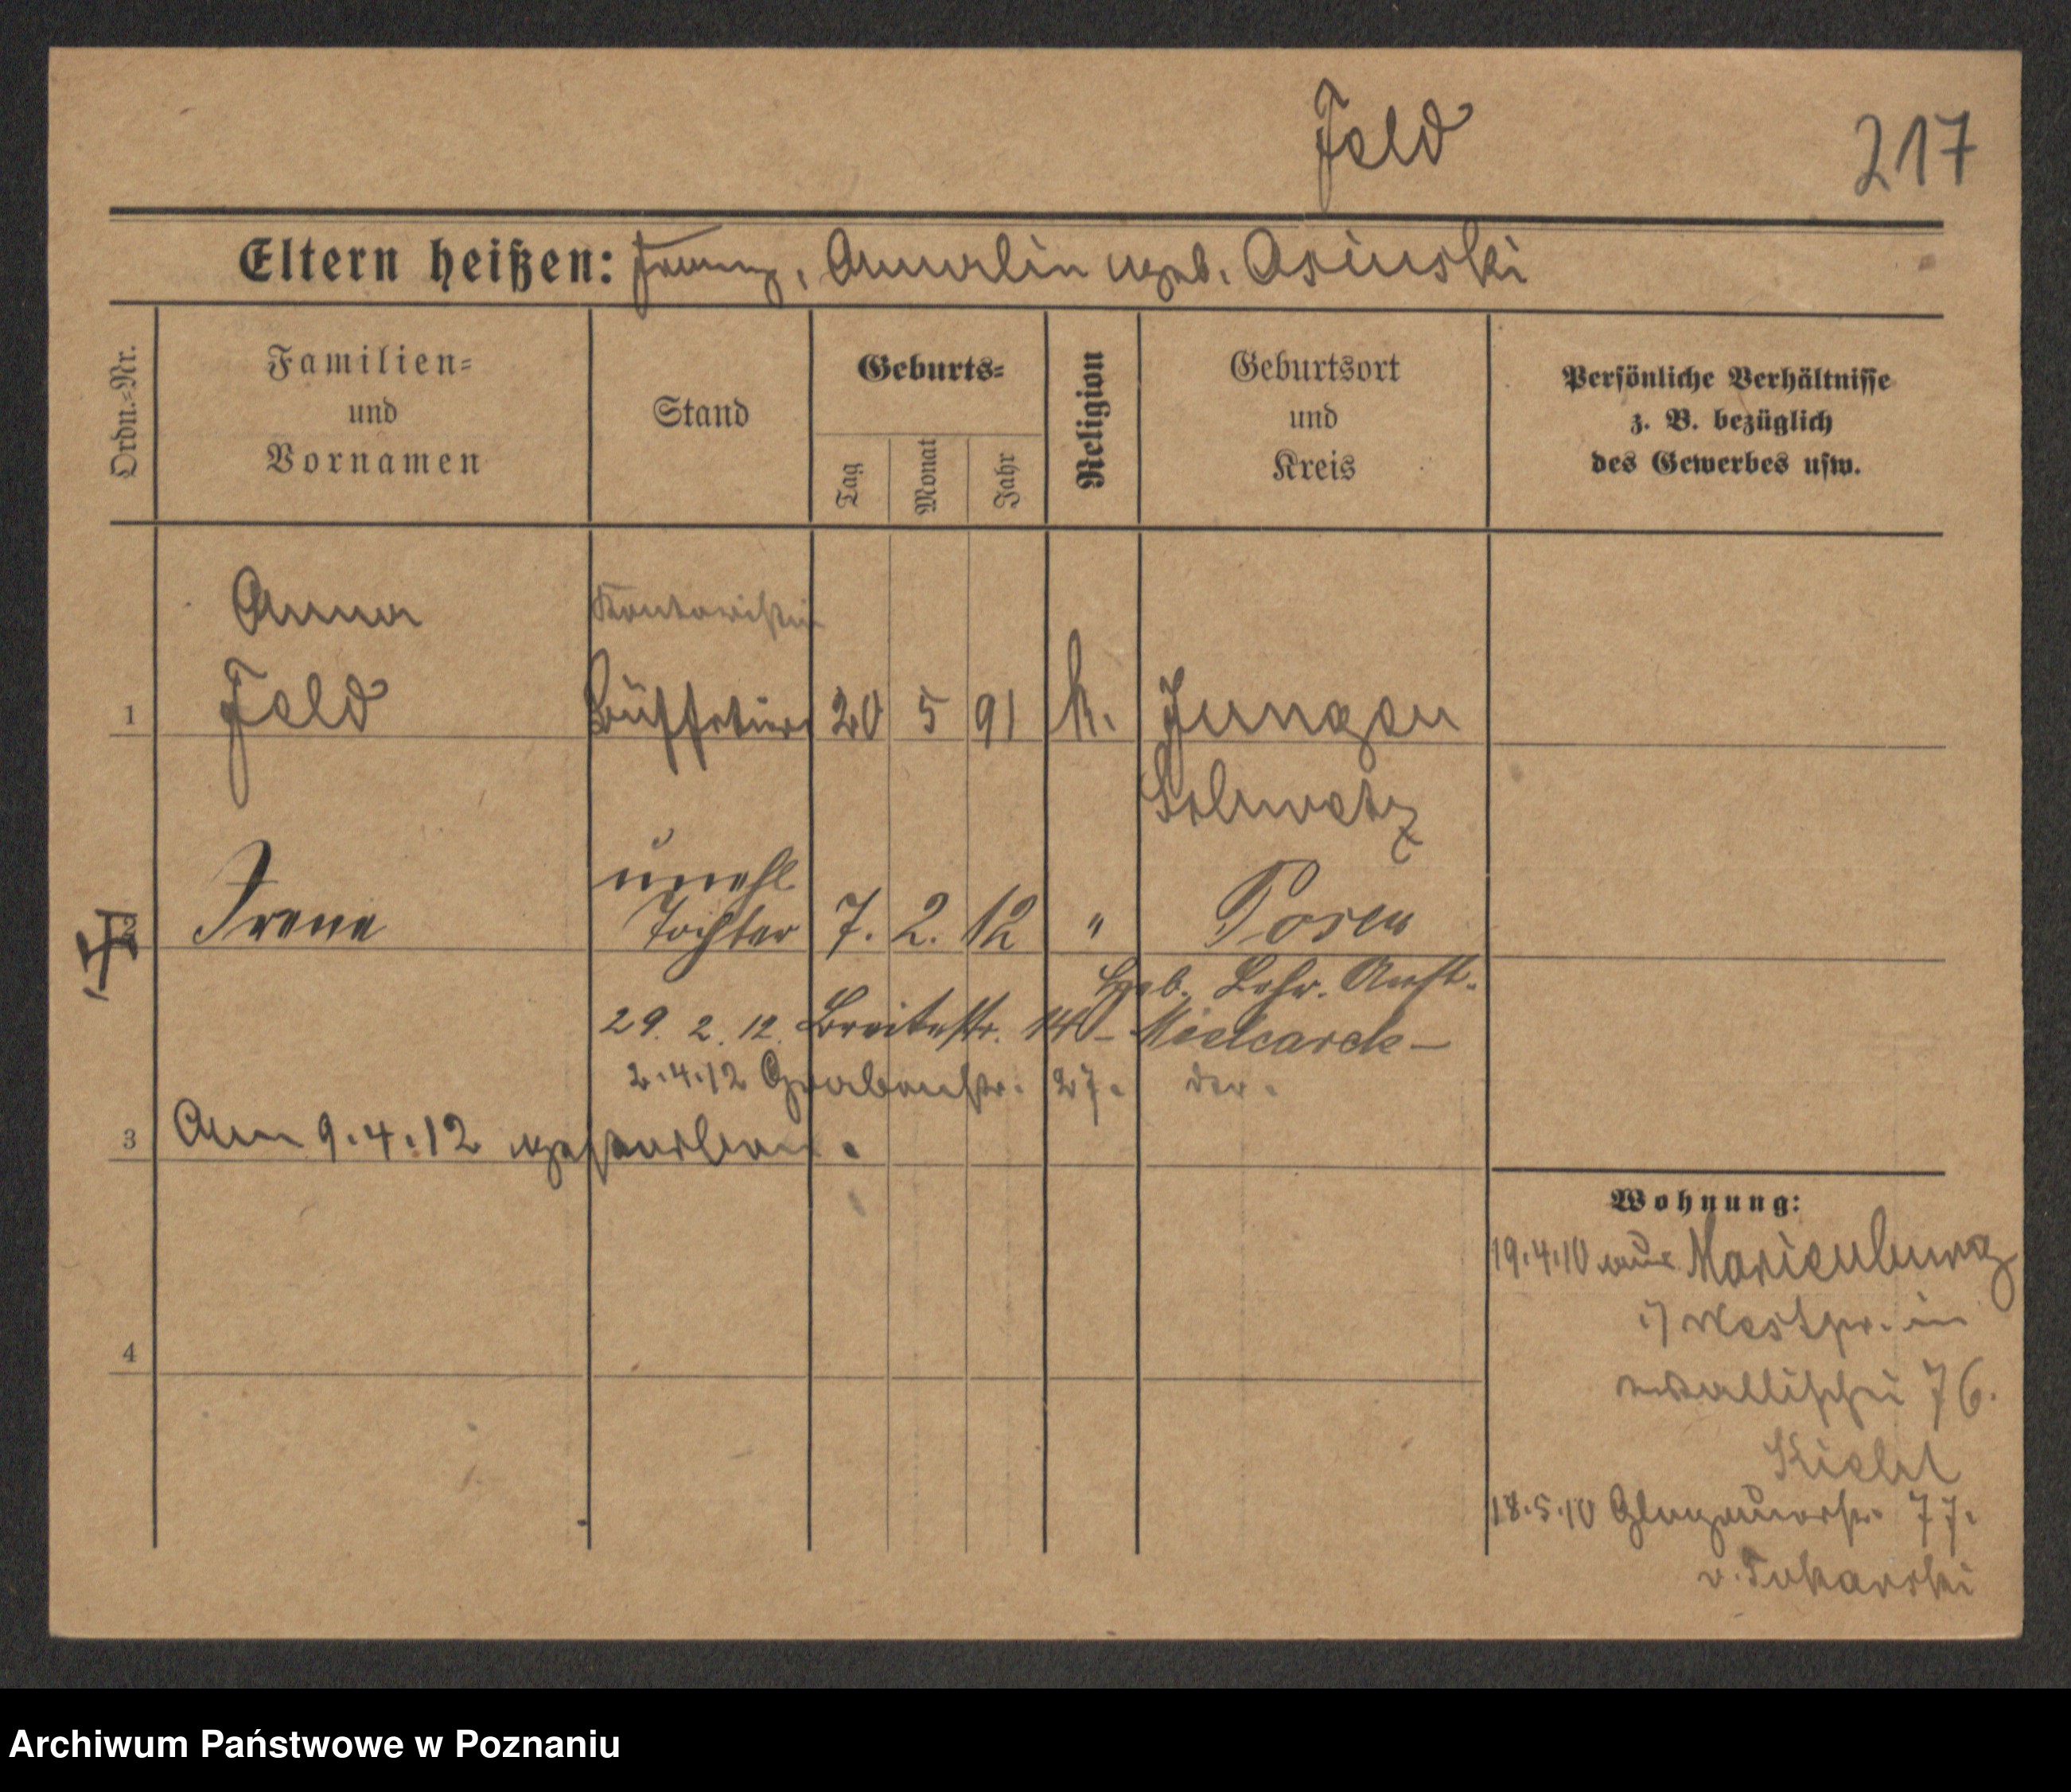 Feld
217
Eltern heißen: Franz, Amalin geb. Osinski
Ordn.-Nr.
Familien-
und
Vornamen
Stand
Geburts-
Tag
Monat
Jahr
Religion
Geburtsort
und
Kreis
Persönliche Verhältnisse
z. B. bezüglich
des Gewerbes usw.
Anna
Kontoristin
1 Feld 20 5 91 k. Jungen
Schwetz
unehl
2 Irene Tochter 7. 2. 12 " Posen
Hgeb. Lehr. Anst.
29. 2. 12. Breitestr. 14 - Mielcarek -
2.4.12 Grabenstr. 27.
3 Am 9.4.12 gestorben.
Wohnung:
19.4.10 aus Marienburg
i/Westpr. in
Wallischei 76.
4
18.5.10 Glogauerstr. 77.
v. Tokarski
Archiwum Państwowe w Poznaniu